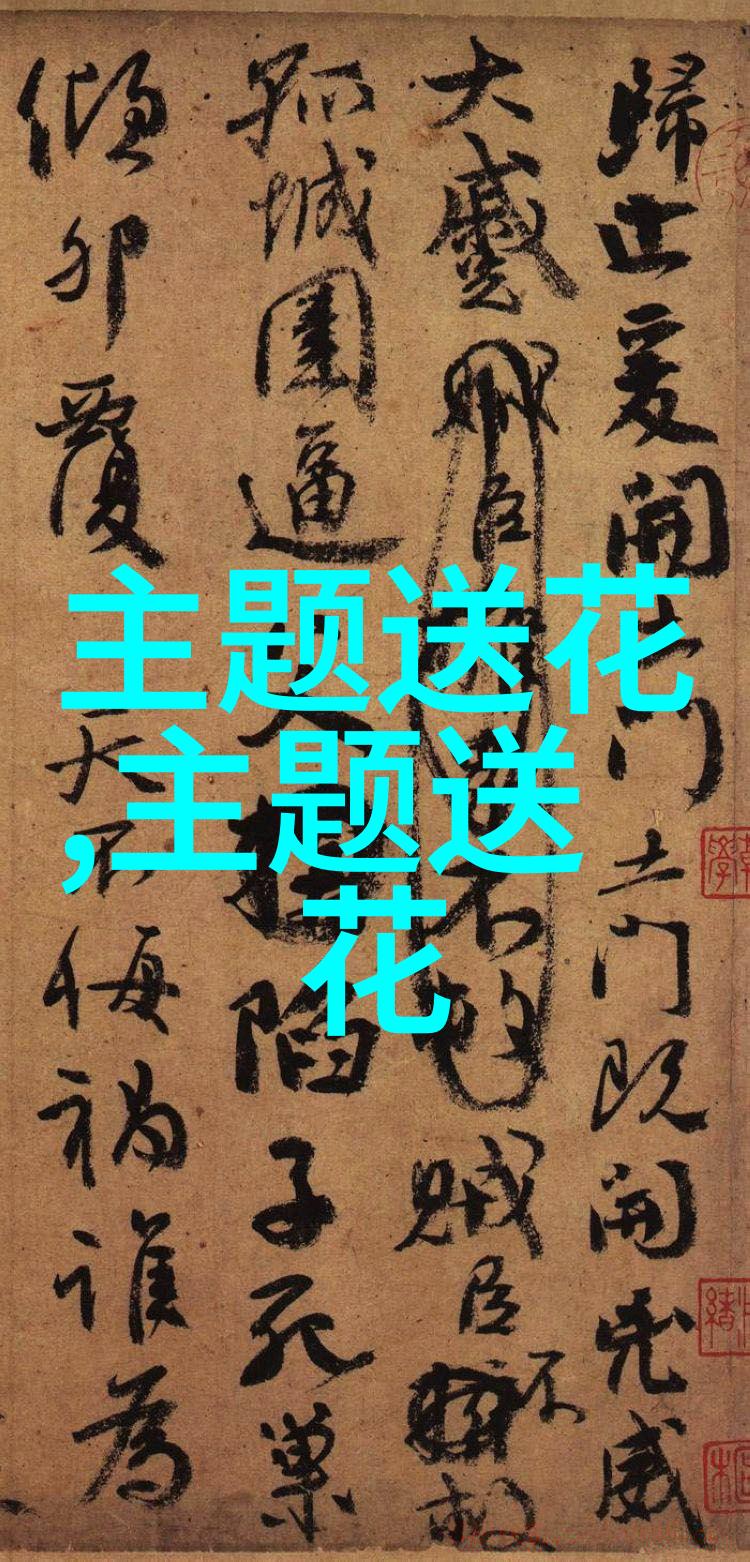 主题送花
,主题送
花
歸止爰開土門土門既開兇威
大蹙賊臣不救賊臣不救
孤城圍逼父陷子死巢
傾卵覆天不悔禍誰為